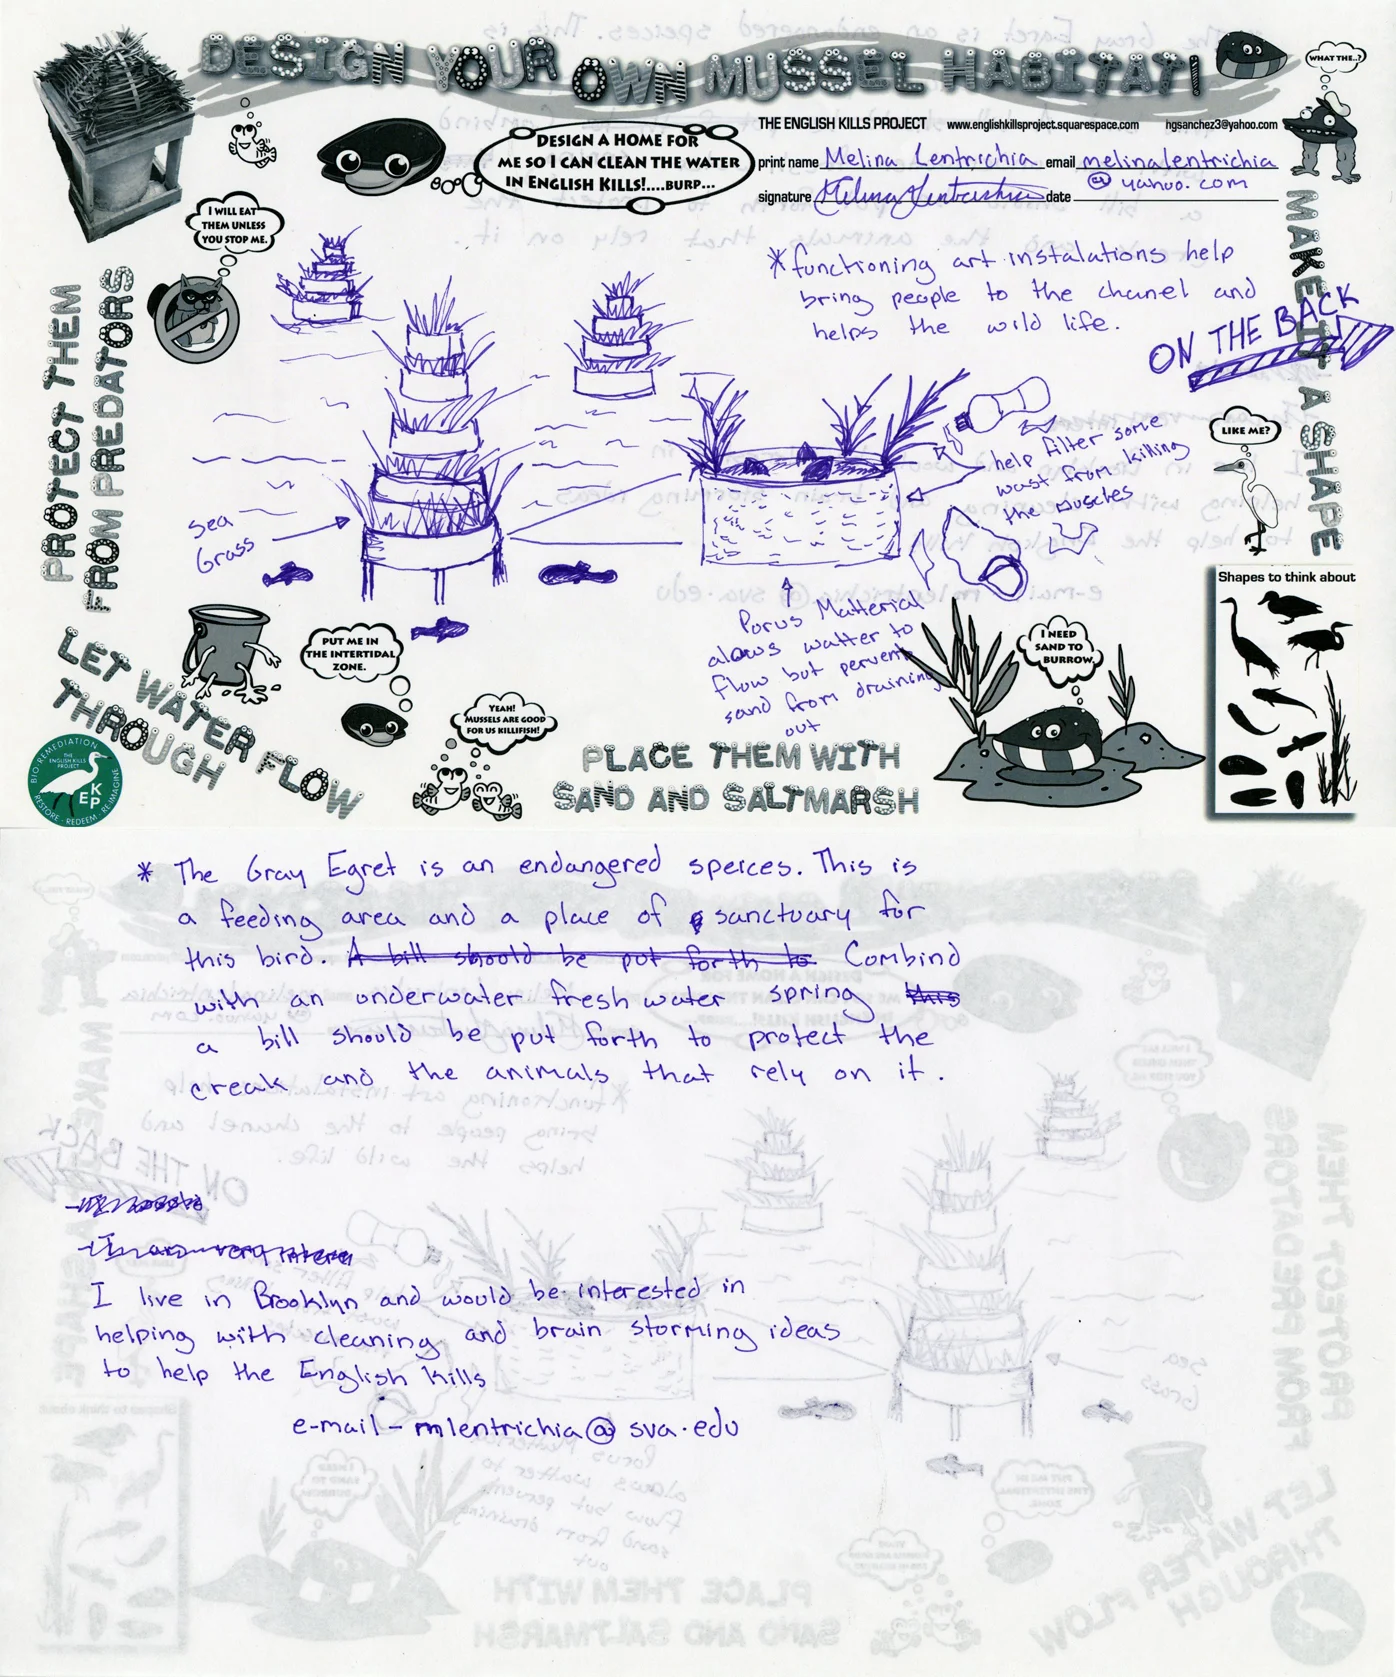 DESIGN YOUR OWN MUSSEL HABITAT!
WHAT THE..?
THE ENGLISH KILLS PROJECT www.englishkillsproject.squarespace.com hgsanchez3@yahoo.com
DESIGN A HOME FOR
ME SO I CAN CLEAN THE WATER
IN ENGLISH KILLS!....BURP...
print name Melina Lentrichia email melinalentrichia
@ yahoo.com
signature Melina Lentrichia date
I WILL EAT
THEM UNLESS
YOU STOP ME.
PROTECT THEM
FROM PREDATORS
MAKE IT A SHAPE
*functioning art instalations help
bring people to the chanel and
helps the wild life.
ON THE BACK
LIKE ME?
help filter some
wast from killing
the muscles
Sea
Grass
Porus Matterial
alows watter to
flow but pervents
sand from draining
out
Shapes to think about
LET WATER FLOW
THROUGH
PUT ME IN
THE INTERTIDAL
ZONE.
YEAH!
MUSSELS ARE GOOD
FOR US KILLIFISH!
I NEED
SAND TO
BURROW.
PLACE THEM WITH
SAND AND SALTMARSH
BIO-REMEDIATION
THE
ENGLISH KILLS
PROJECT
EKP
RESTORE · REDEEM · RE-IMAGINE
* The Gray Egret is an endangered speices. This is
a feeding area and a place of sanctuary for
this bird. A bill should be put forth to Combind
with an underwater fresh water spring this
a bill should be put forth to protect the
creak and the animals that rely on it.
I am very intere
I live in Brooklyn and would be interested in
helping with cleaning and brain storming ideas
to help the English Kills
e-mail - mlentrichia@sva.edu